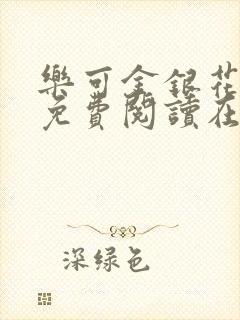 樂可金銀花
免費閱讀在
深绿色